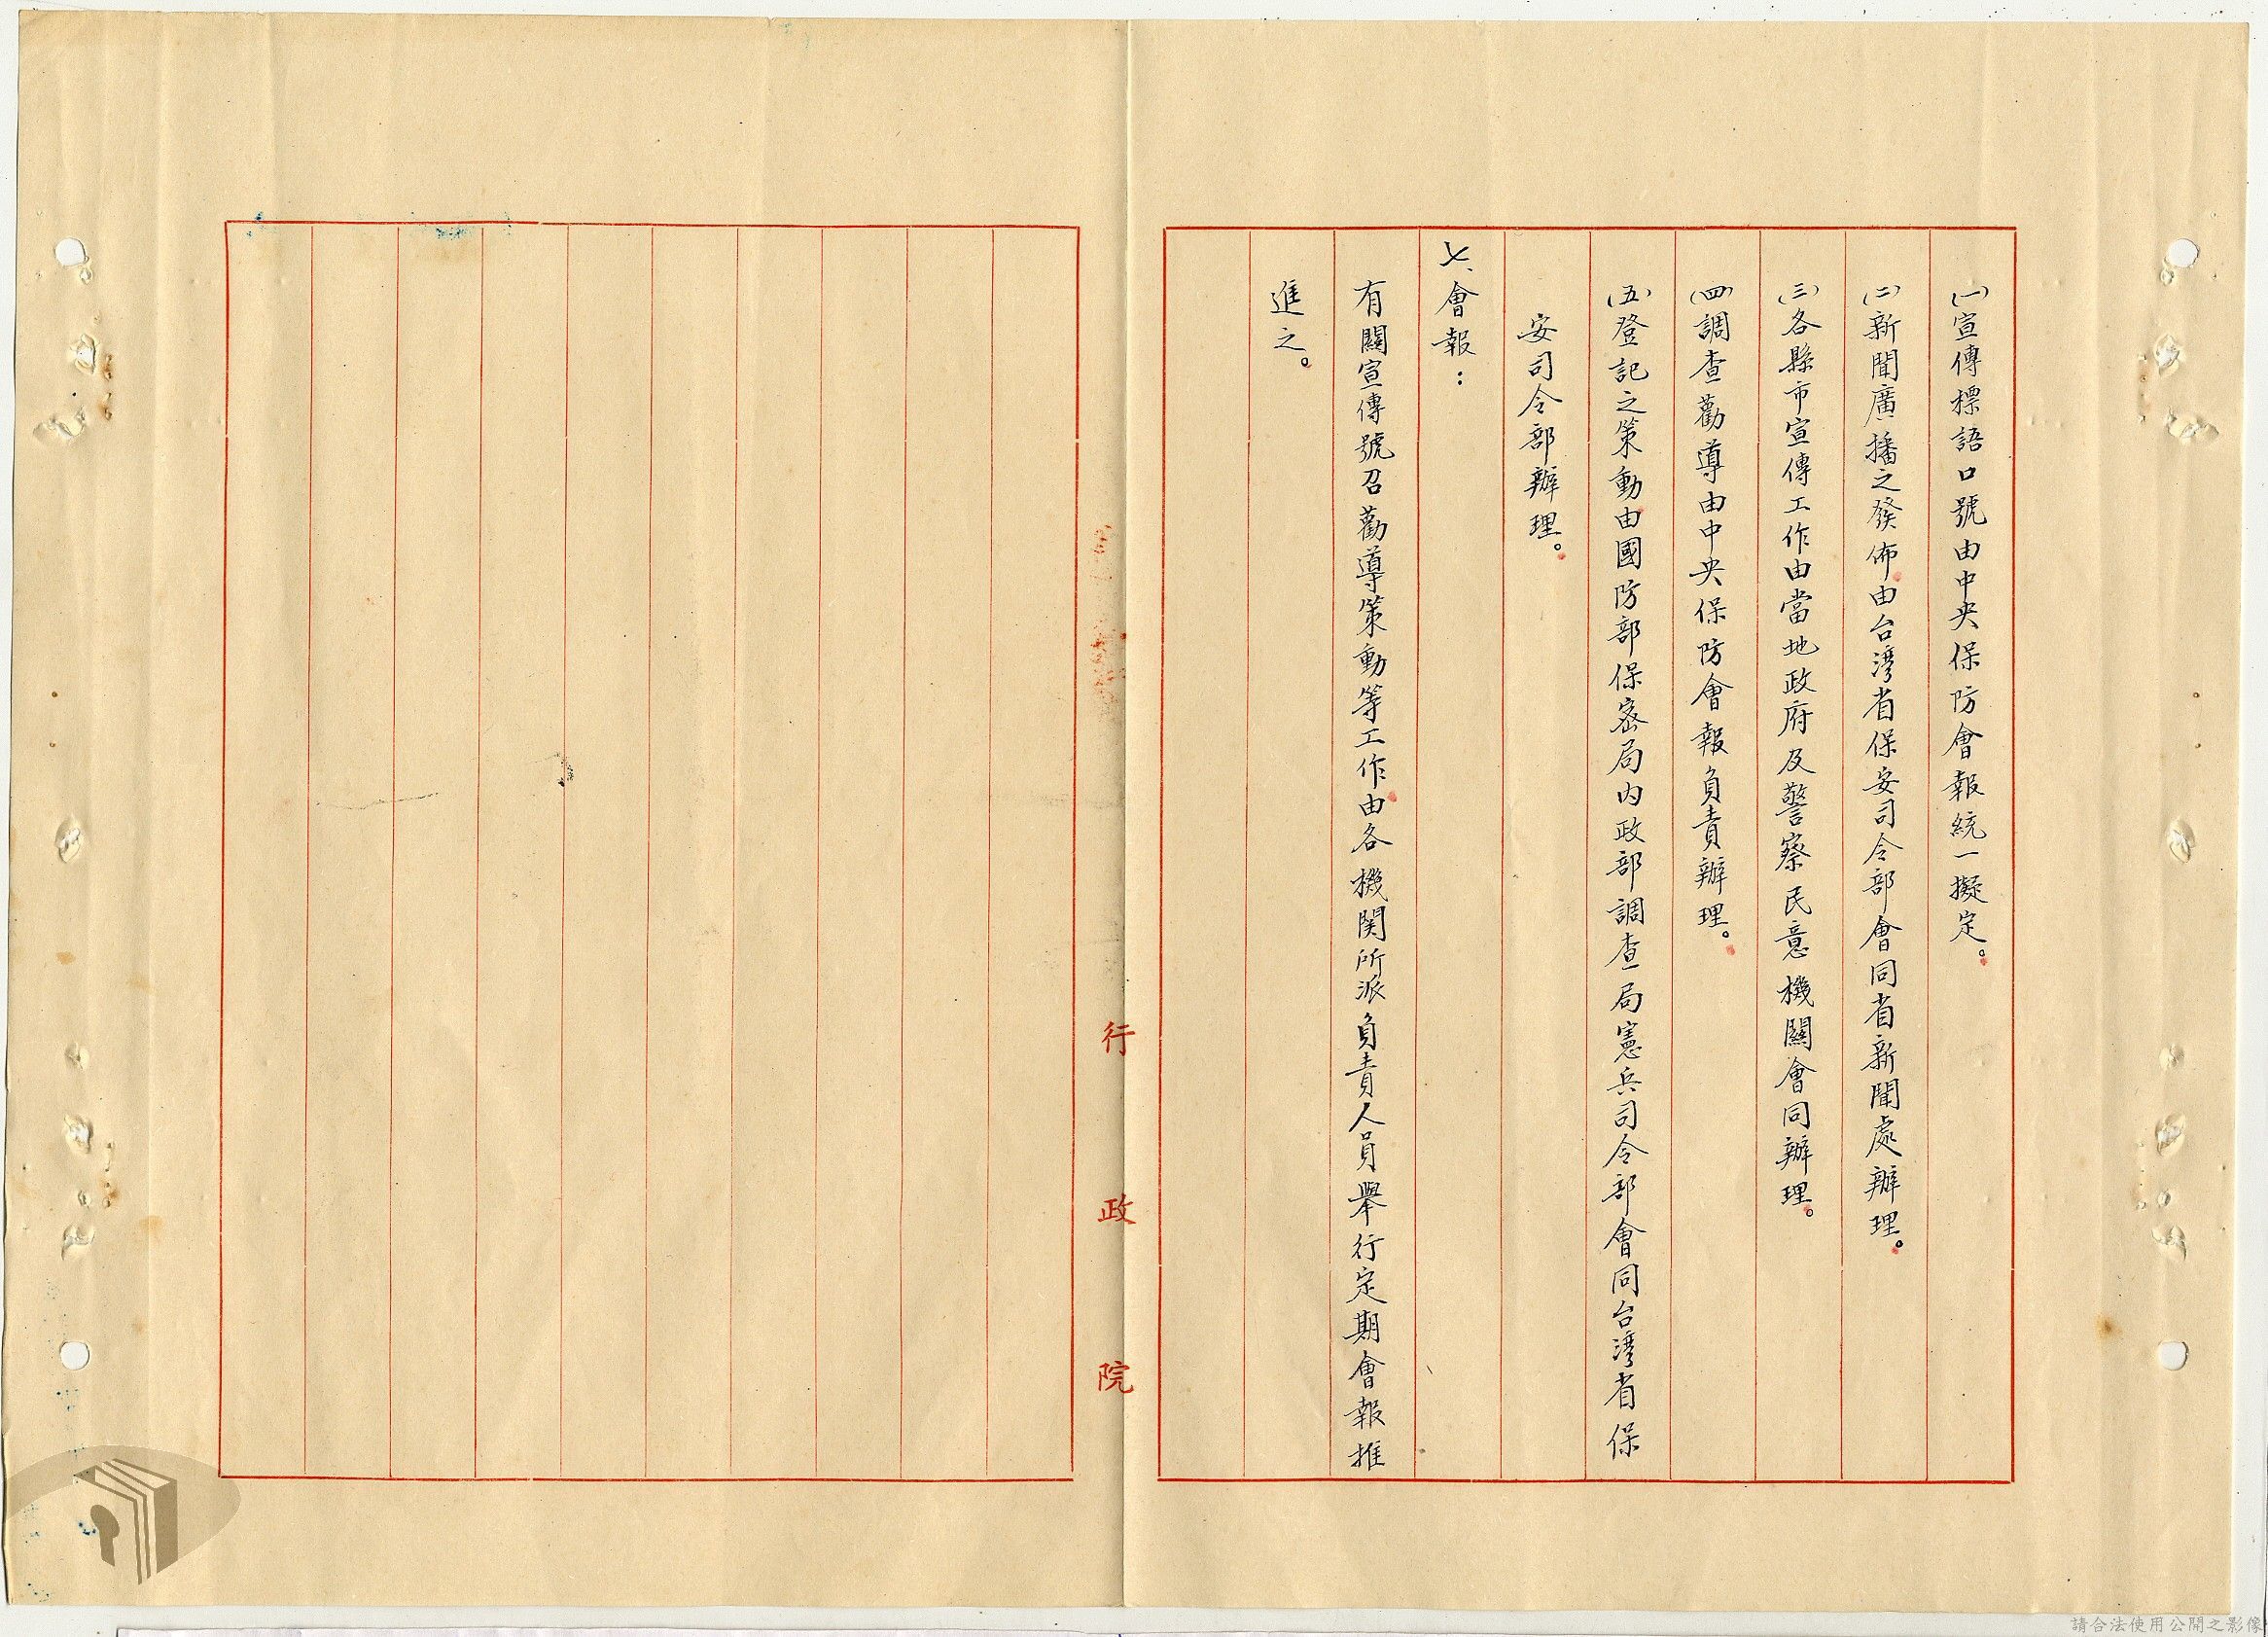 (一)宣傳標語口號由中央保防會報統一擬定。
(二)新聞廣播之發佈由台灣省保安司令部會同省新聞處辦理。
(三)各縣市宣傳工作由當地政府及警察民意機關會同辦理。
(四)調查勸導由中央保防會報負責辦理。
(五)登記之策動由國防部保密局內政部調查局憲兵司令部會同台灣省保
安司令部辦理。
七、會報：
有關宣傳號召勸導策動等工作由各機関所派負責人員舉行定期會報推
進之。
行政院
請合法使用公開之影像